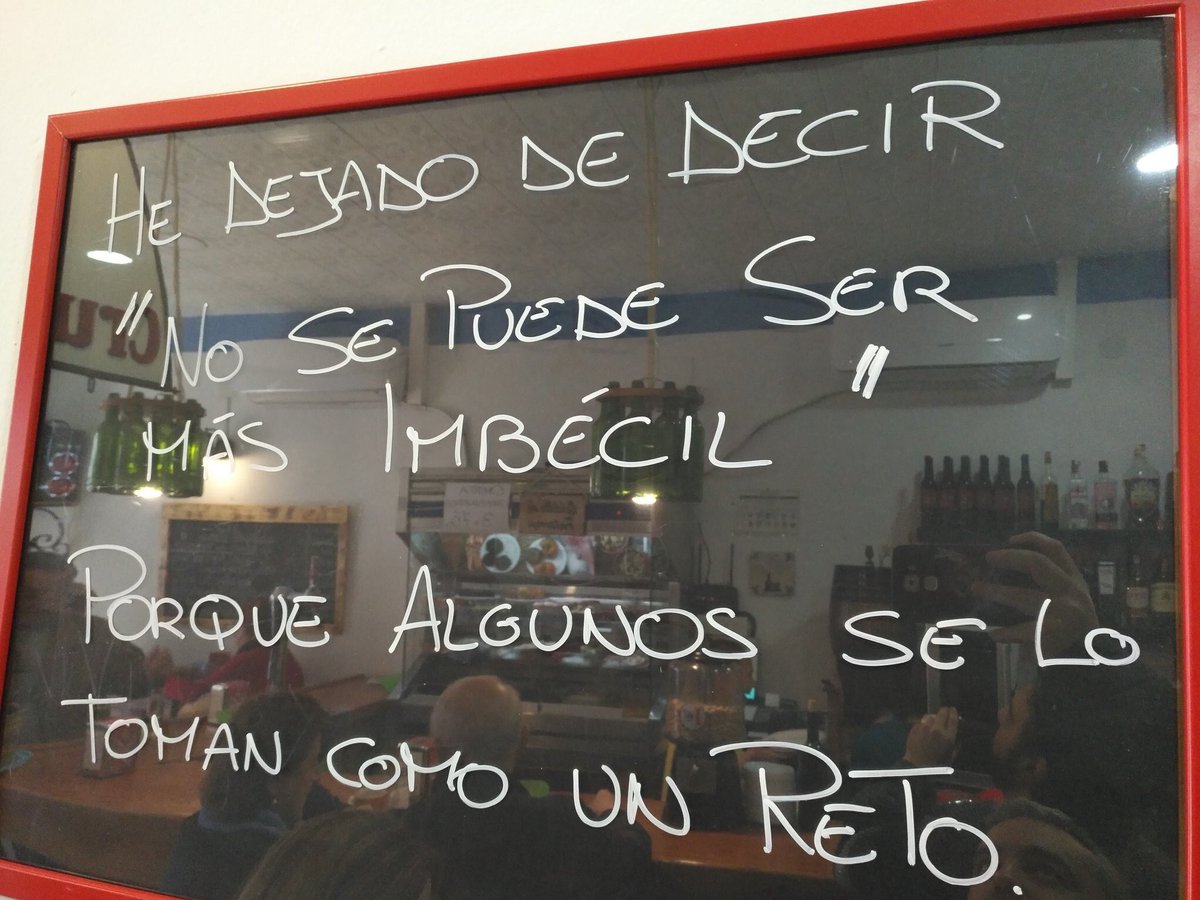 HE DEJADO DE DECIR
"NO SE PUEDE SER
MÁS IMBÉCIL"
PORQUE ALGUNOS SE LO
TOMAN COMO UN RETO.